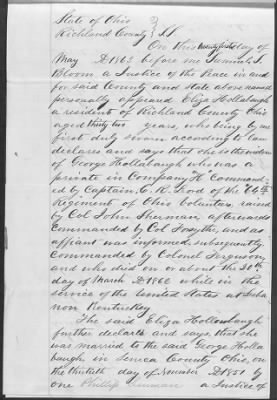 State of Ohio
Richland County } SS.
On this twenty first day of
May AD 1862 before me Jeremiah S.
Bloom a Justice of the Peace in and
for said County and State above named
personally appeared Eliza Hollabaugh
a resident of Richland County Ohio
aged thirty two years, who being by me
first duly sworn according to law
declares and says that she is the widow
of George Hollabaugh who was a
private in Company "H" Command-
ed by Captain, C. R. Lord of the 64th
Regiment of Ohio Volunteers raised
by Col John Sherman, afterwards
Commanded by Col Forsythe, and as
affiant was informed, subsequently
Commanded by Colonel Ferguson,
and who died on or about the 30th
day of March AD 1862 while in the
service of the United States at Leba
non Kentucky
The said Eliza Hollowbaugh
further declares and says, that she
was married to the said George Holla
baugh, in Seneca County, Ohio, on
the thirtieth day of November AD 1851 by
one Phillip a Justice of